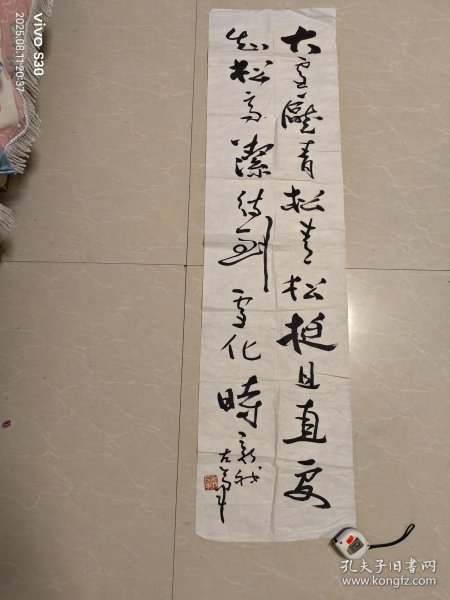 大雪压青松青松挺且直要
知松高洁待到雪化时
vivo S30
2025.08.11 20:37
孔夫子旧书网
www.kongfz.com